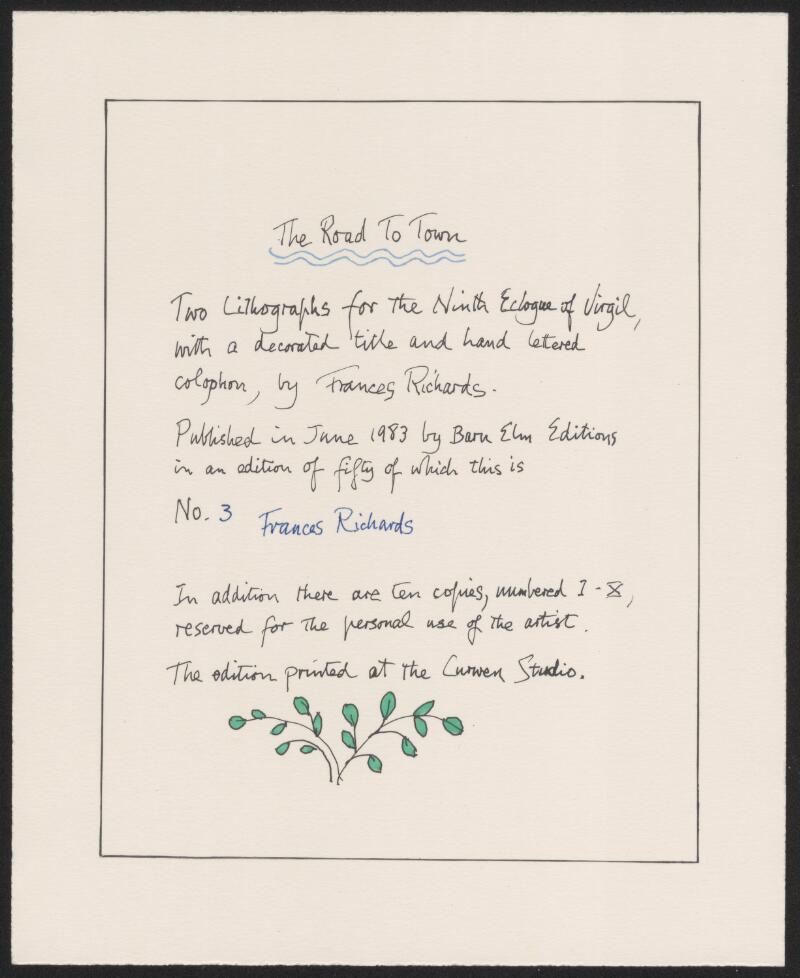 The Road To Town
Two Lithographs for the Ninth Eclogue of Virgil,
with a decorated title and hand lettered
colophon, by Frances Richards.
Published in June 1983 by Barn Elm Editions
in an edition of fifty of which this is
No. 3 Frances Richards
In addition there are ten copies, numbered I - X,
reserved for the personal use of the artist.
The edition printed at the Curwen Studio.